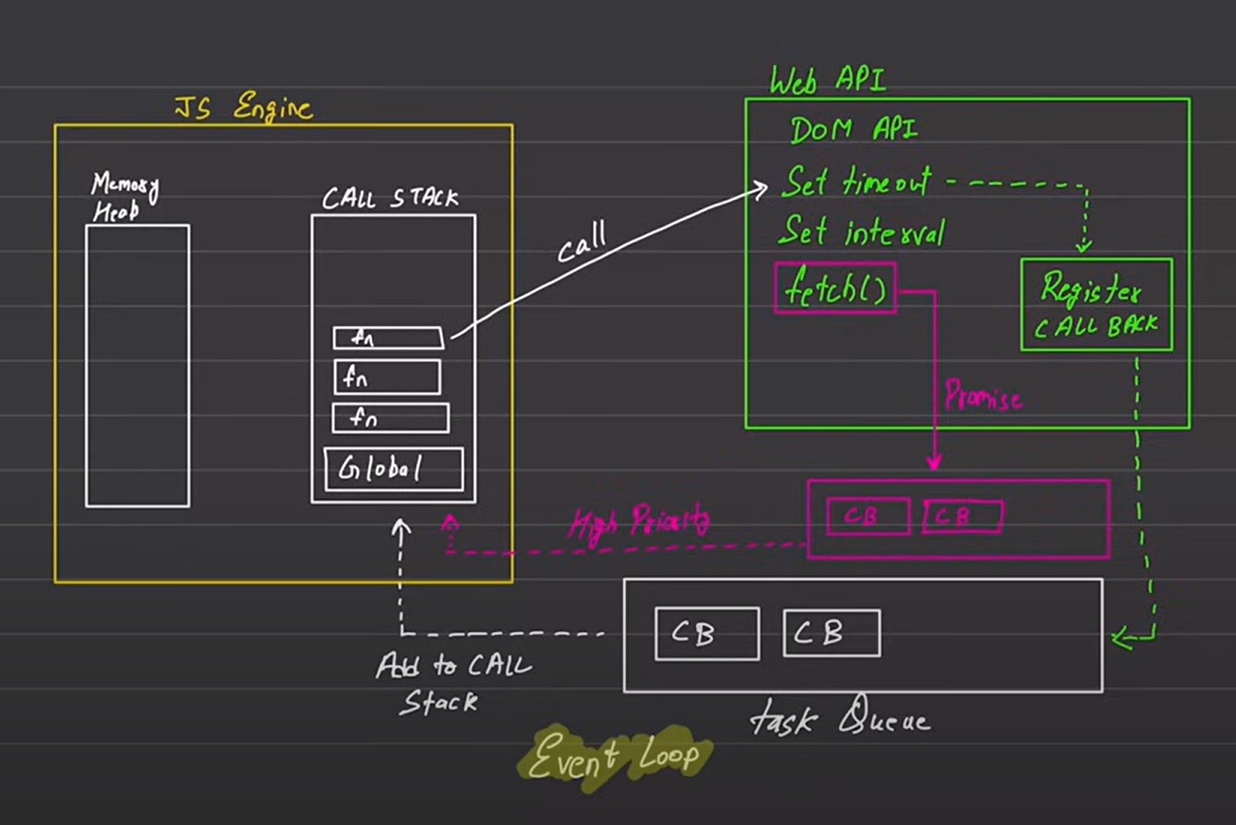 JS Engine
Memory
Heab
CALL STACK
fn
fn
fn
Global
call
Web API
DOM API
Set timeout
Set interval
fetch()
Register
CALL BACK
Promise
CB
CB
High Priority
CB
CB
Add to CALL
Stack
task Queue
Event Loop